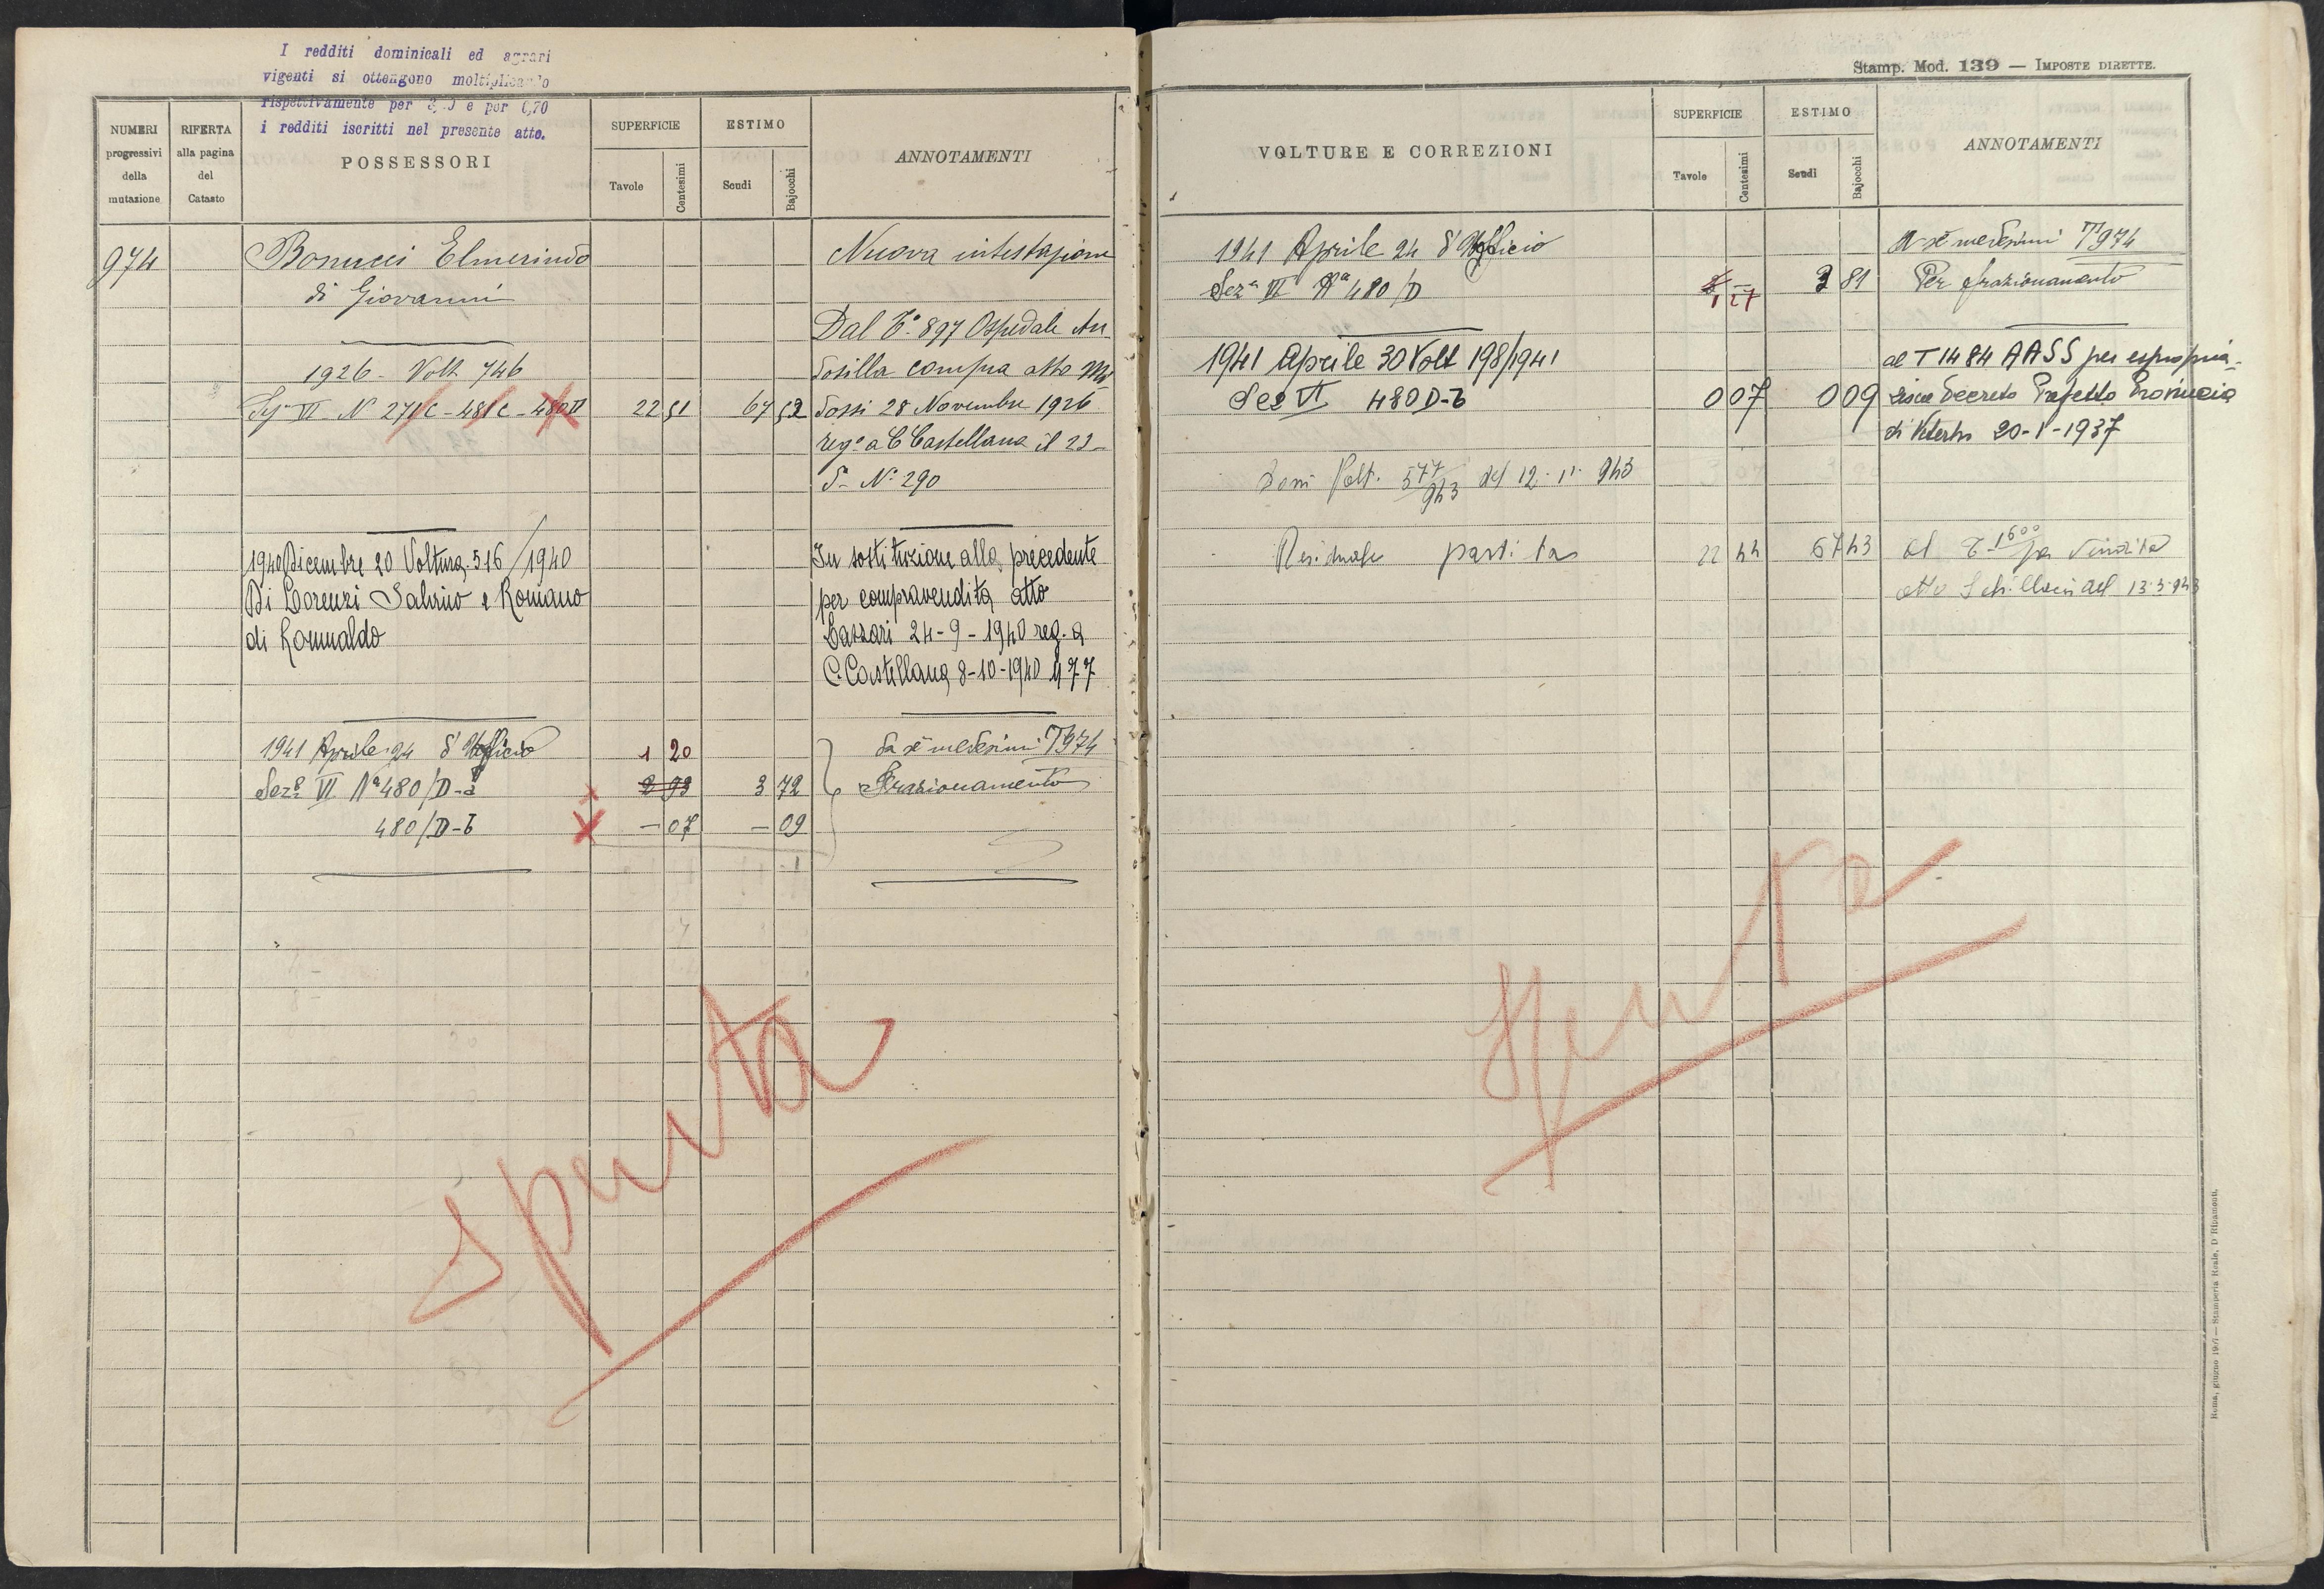 I redditi dominicali ed agrari
vigenti si ottengono moltiplicando
rispettivamente per e per 0,70
i redditi iscritti nel presente atto.
NUMERI progressivi della mutazione
RIFERTA alla pagina del Catasto
POSSESSORI
SUPERFICIE
Tavole Centesimi
ESTIMO
Scudi Bajocchi
ANNOTAMENTI
974 Bonucci Elmerindo Nuova intestazione
di Giovanni
Dal T.º 897 Ospedale An
1926 - Volt 746 dosilla compra atto Mi
Sez VI N 271/C - 481C - 480D 22 51 67 52 dossi 28 Novembre 1926
reg.º a C Castellana il 22
N.º 290
1940 Dicembre 20 Voltura 516/1940 In sostituzione alla precedente
Di Lorenzi Sabino e Romano per compravendita atto
di Romualdo Lazzari 24-9-1940 reg. a
C. Castellana 8-10-1940 477
1941 Aprile 24 d'Ufficio 1 20 Da sé medesimi T 974
Sezº VI Nº 480/D-a 2 93 3 72 Frazionamento
480/D-b — 07 — 09
Spenta
Stamp. Mod. 139 — IMPOSTE DIRETTE.
VOLTURE E CORREZIONI
SUPERFICIE
Tavole Centesimi
ESTIMO
Scudi Bajocchi
ANNOTAMENTI
1941 Aprile 24 d'Ufficio A sé medesimi T 974
Sezª VI Nª 480/D 1 27 3 81 Per frazionamento
1941 Aprile 30 Volt 198/1941 al T 1484 AASS per espropria-
Sez VI 480D-b 0 07 0 09 zione Decreto Prefetto Provincia
di Viterbo 20-1-1937
Volt. 577/943 del 12·11· 943
Residuale partita 22 44 67 43 Al T 1600 per vendita
atto Schillaci del 13-3-943
Spenta
Roma, giugno 1907 — Stamperia Reale, D. Ripamonti.